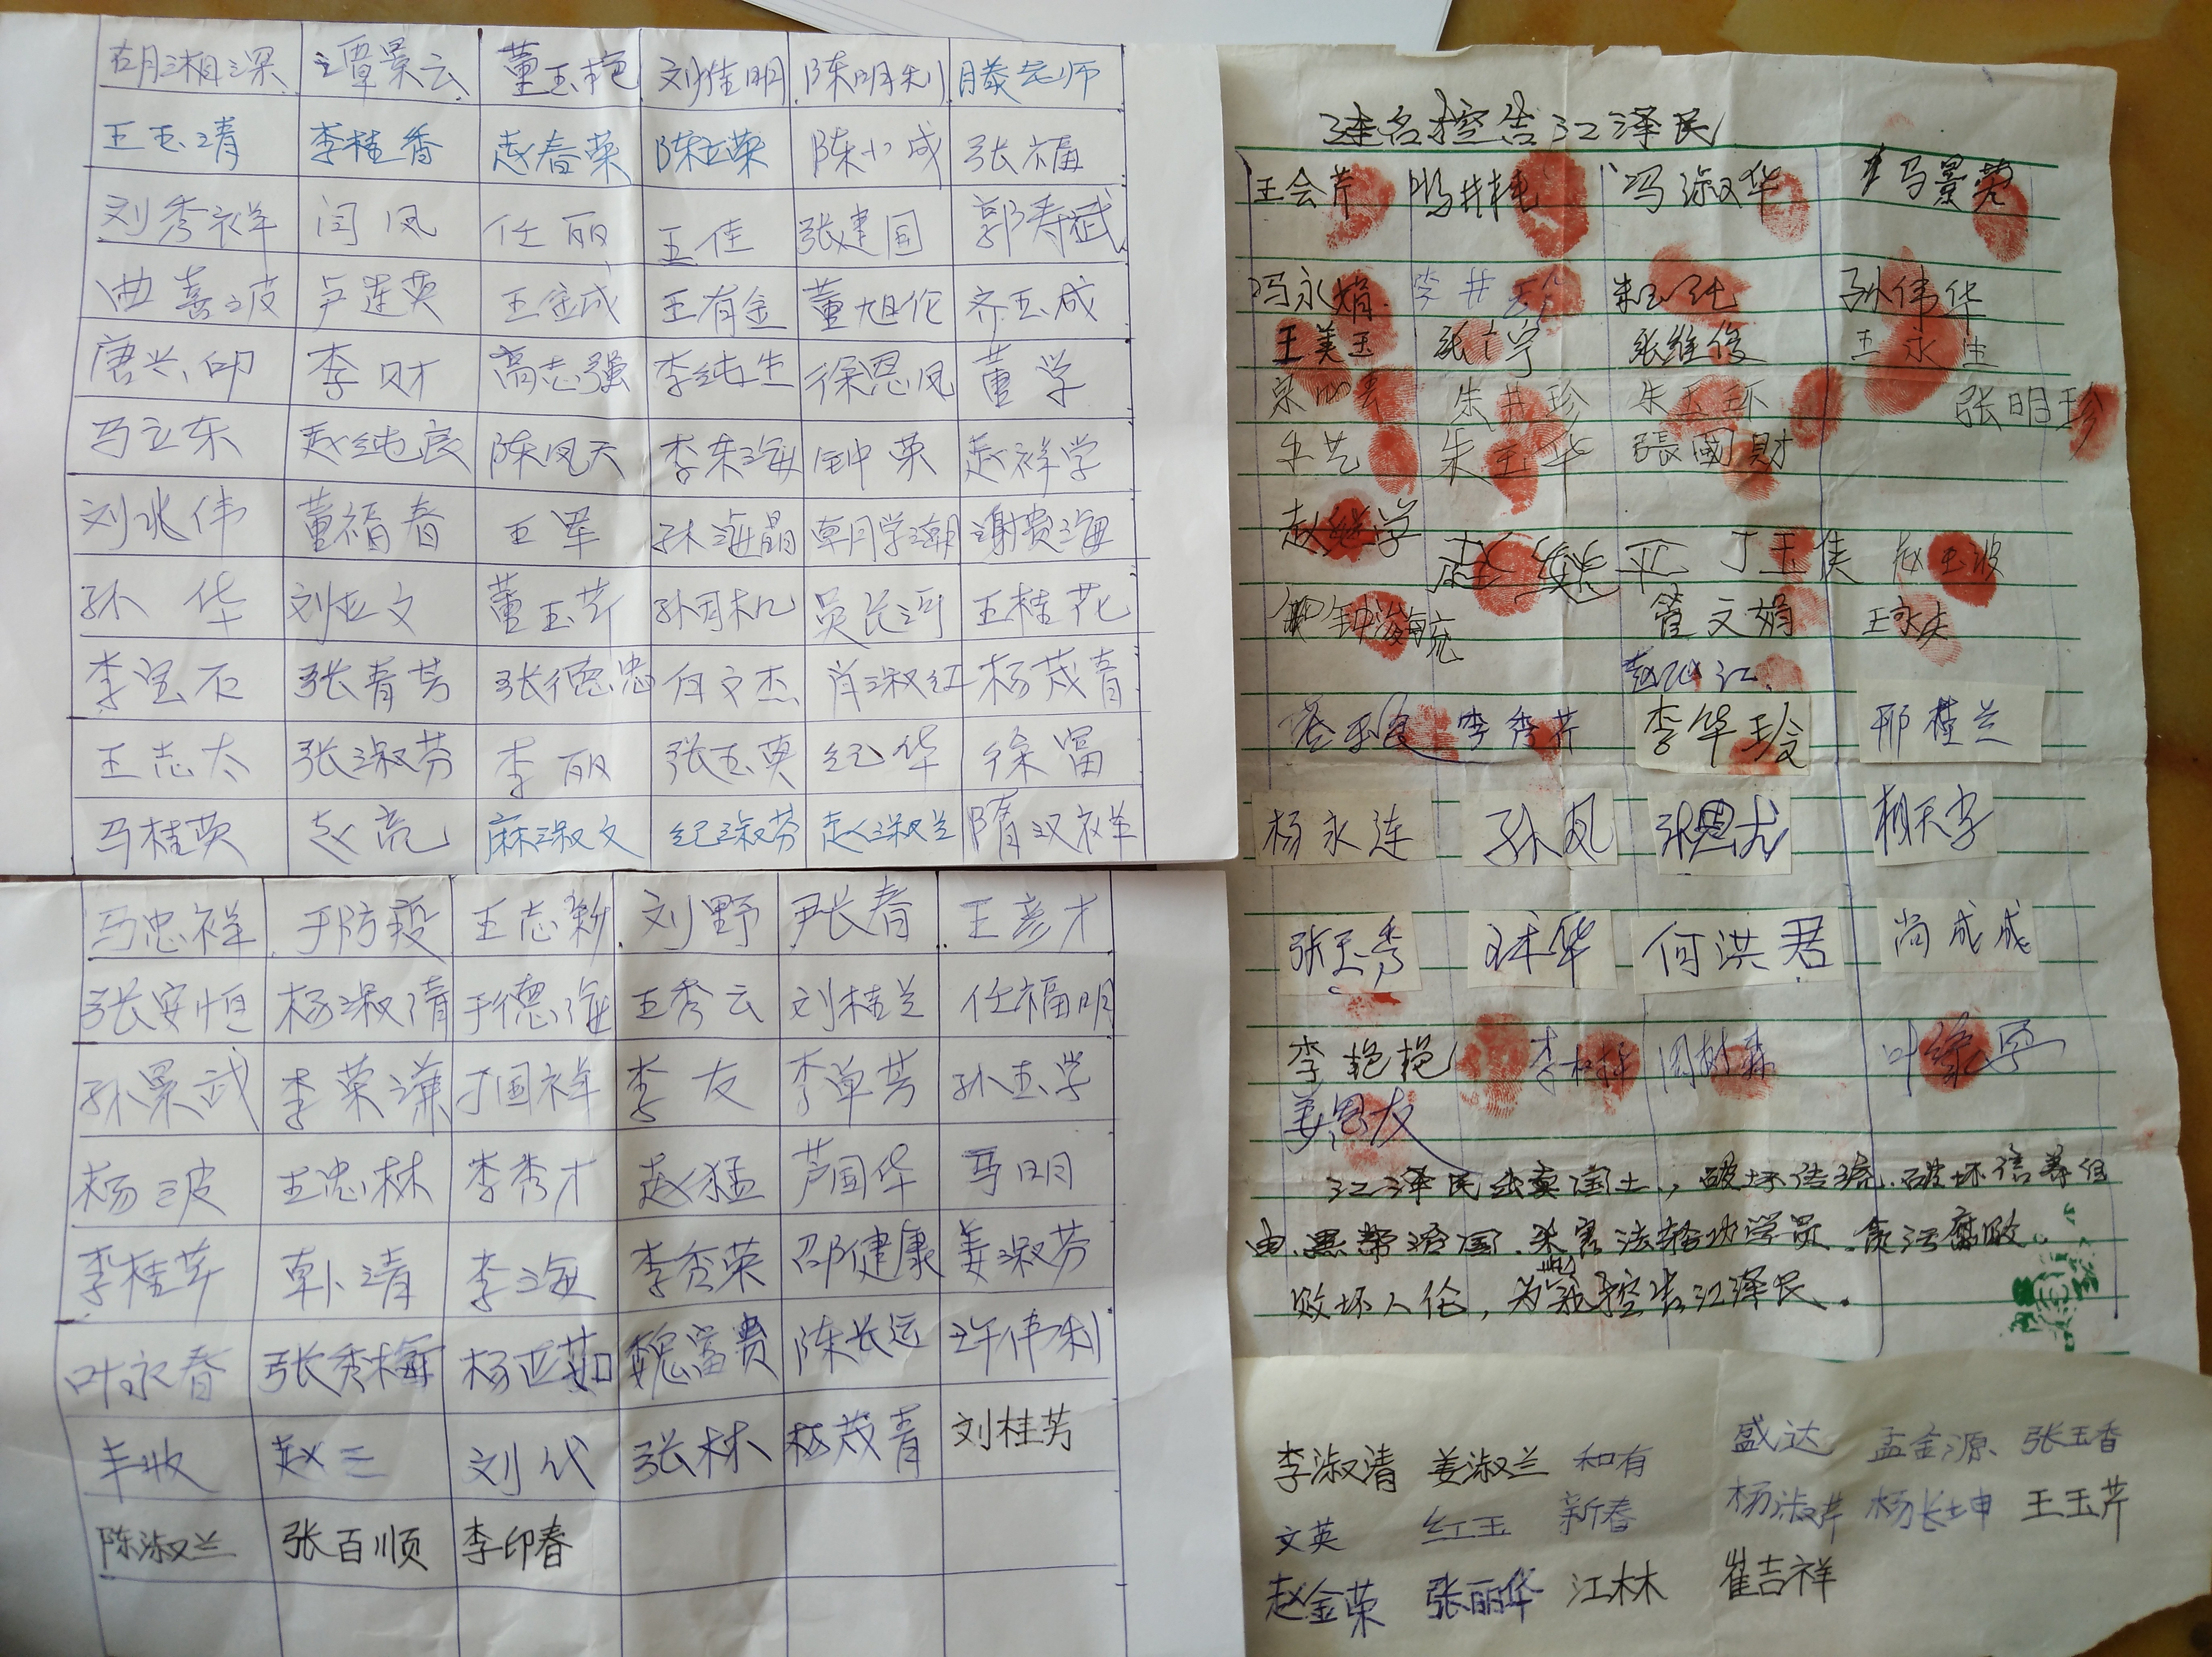 胡湘深 谭景云 董玉艳 刘佳明 陈明利 滕老师
王玉清 李桂香 赵春荣 陈立荣 陈小成 张福
刘秀祥 闫凤 任丽 王佳 张建国 郭寿斌
曲喜波 卢莲英 王金成 王有金 董旭伦 齐玉成
唐兴印 李财 高志强 李纯生 徐恩凤 董学
马立东 赵纯良 陈凤天 李东海 钟英 赵祥学
刘兆伟 董福春 王军 孙海晶 朝学潮 谢贵海
孙华 刘亚文 董玉芹 吴长河 王桂花
李宝石 张青芳 张德忠 付文杰 肖淑红 杨茂春
王志太 张淑芬 李丽 张玉英 纪华 徐富
马桂英 赵亮 麻淑文 纪淑芬 赵淑兰 隋汉祥
马忠祥 于防疫 王志新 刘野 尹长春 王彦才
张安恒 杨淑清 于德海 王秀云 刘桂兰 任福明
孙景武 李荣谦 丁国祥 李友 李单芳 孙玉学
杨波 王忠林 李秀才 赵猛 芦国华 马明
李桂芹 韩清 李海 李秀荣 邵健康 姜淑芬
叶永春 张秀梅 杨亚茹 魏富贵 陈长远 许伟利
丰收 赵三 刘代 张林 杨茂青 刘桂芳
陈淑兰 张百顺 李印春
连名控告江泽民
王会芹 冯井艳 冯淑华 马景荣
冯永娟 李井 朱玉纯 孙伟华
王美玉 张宁 张维俊 王永生
朱井珍 朱玉环 张明珍
王艺 朱玉华 張國財
赵继学
赵魏平 丁玉侠 赵玉波
钟海流 管文娟 王永庆
赵江
李秀芹 李华玲 邢桂兰
杨永连 孙凤 张恩龙 柏天李
张玉秀 王林华 何洪君 尚成成
李艳艳 李桂 周树森
姜恩友
江泽民出卖国土，破坏传统.破坏信养自
由.黑帮治国.杀害法轮功学员.贪污腐败.
败坏人伦，为此我控告江泽民.
李淑清 姜淑兰 和有 盛达 孟金源 张玉香
文英 红玉 新春 杨淑芹 杨长坤 王玉芹
赵金荣 张丽华 江林 崔吉祥